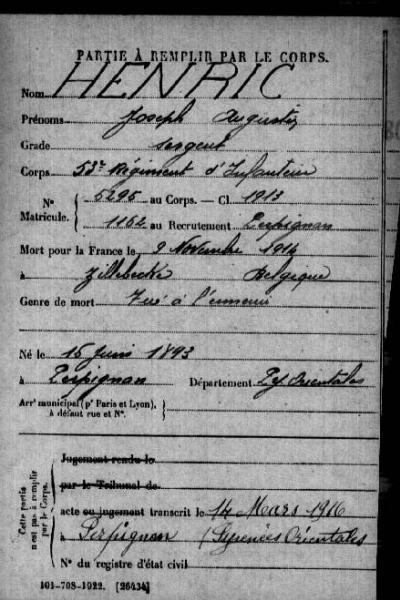 PARTIE À REMPLIR PAR LE CORPS.
Nom HENRIC
Prénoms Joseph Augustin
Grade sergent
Corps 53e Régiment d'Infanterie
N° Matricule. { 5295 au Corps. — Cl. 1913
1162 au Recrutement Perpignan
Mort pour la France le 9 Novembre 1914
à Zillebecke Belgique
Genre de mort Tué à l'ennemi
Né le 15 Juin 1893
à Perpignan Département Pyr Orientales
Arrt municipal (pr Paris et Lyon),
à défaut rue et N°.
Cette partie n'est pas à remplir par le Corps.
Jugement rendu le
par le Tribunal de
acte ou jugement transcrit le 14 Mars 1916
à Perpignan (Pyrénées Orientales
N° du registre d'état civil
101-708-1922. [26434]